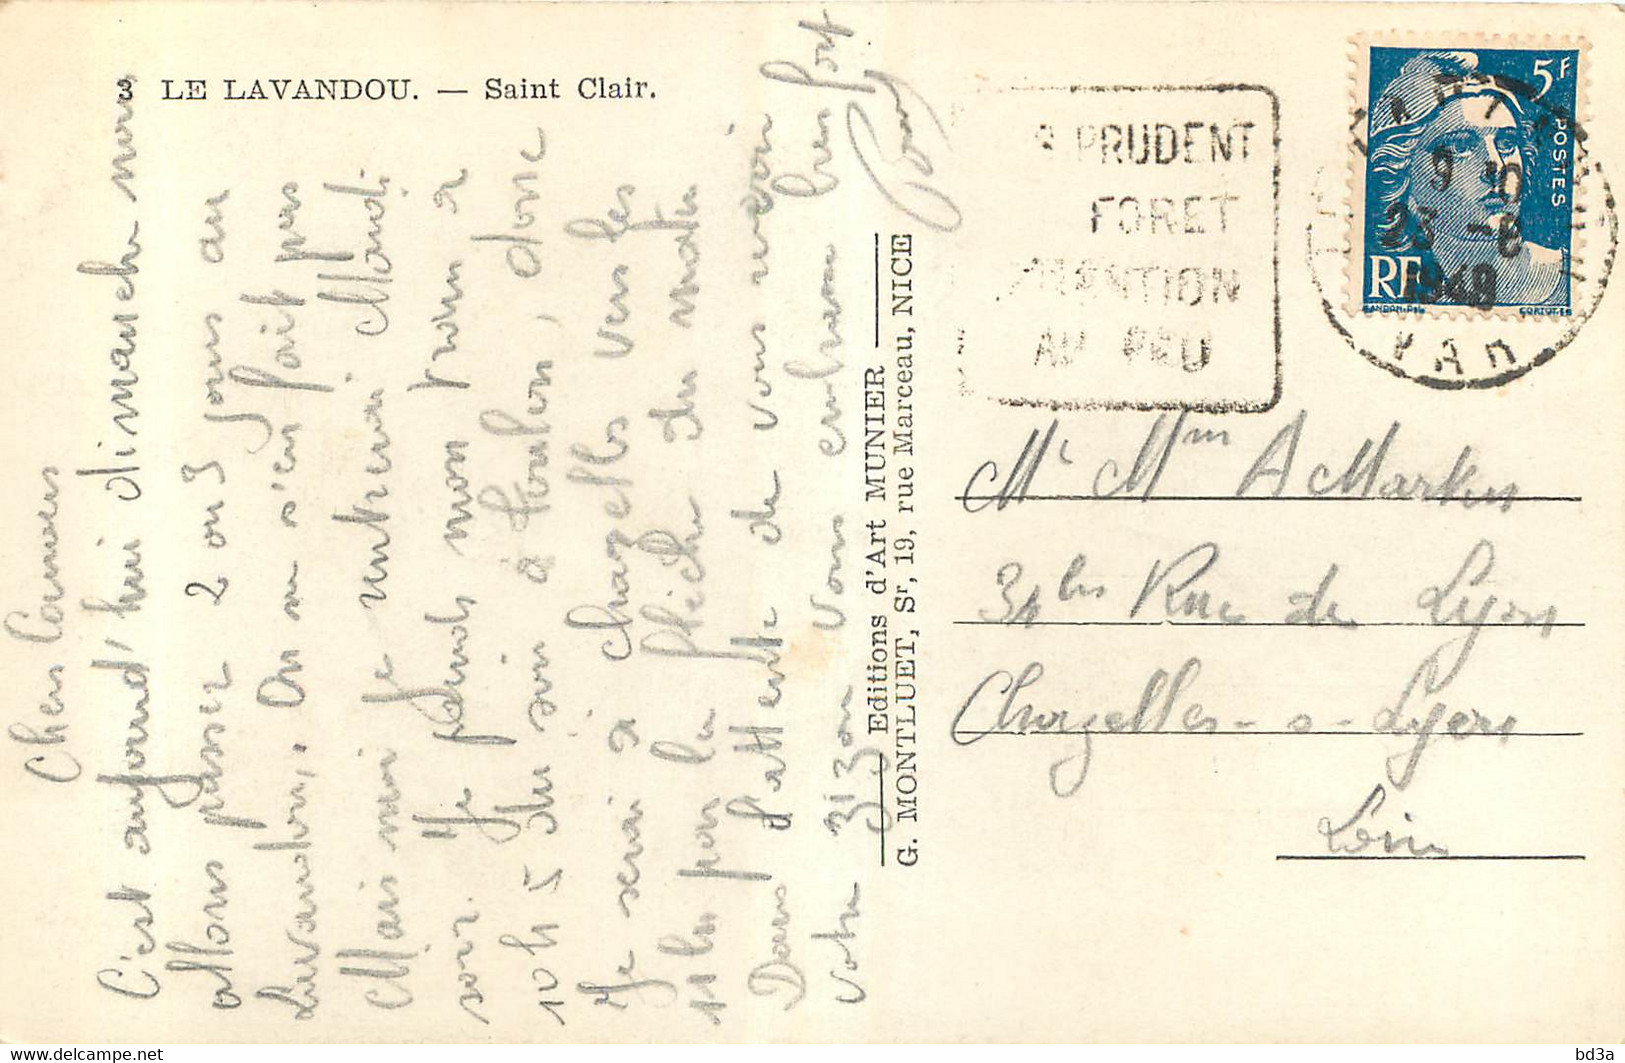 3 LE LAVANDOU. — Saint Clair.
Chers
C'est aujourd'hui dimanche nous
allons passer 2 ou 3 jours au
Lavandou, on ne s'en fait pas
Mais moi je rentrerai Mardi
soir. Je prends mon train à
10h 5 du soir à Toulon, donc
Je serai à chazelles vers les
11h par la flèche du matin
Dans l'attente de vous revoir
votre vous embrasse bien fort
Editions d'Art MUNIER
G. MONTLUET, Sr, 19, rue Marceau, NICE
PRUDENT
FORET
ATTENTION
AU FEU
5F
POSTES
RF
GANDON-DEL
CORTOT-SC
9 10
23 -8
1948
VAR
Mr Mme A Markus
34 bis Rue de Lyon
Chazelles-s-Lyon
Loire
bd3a